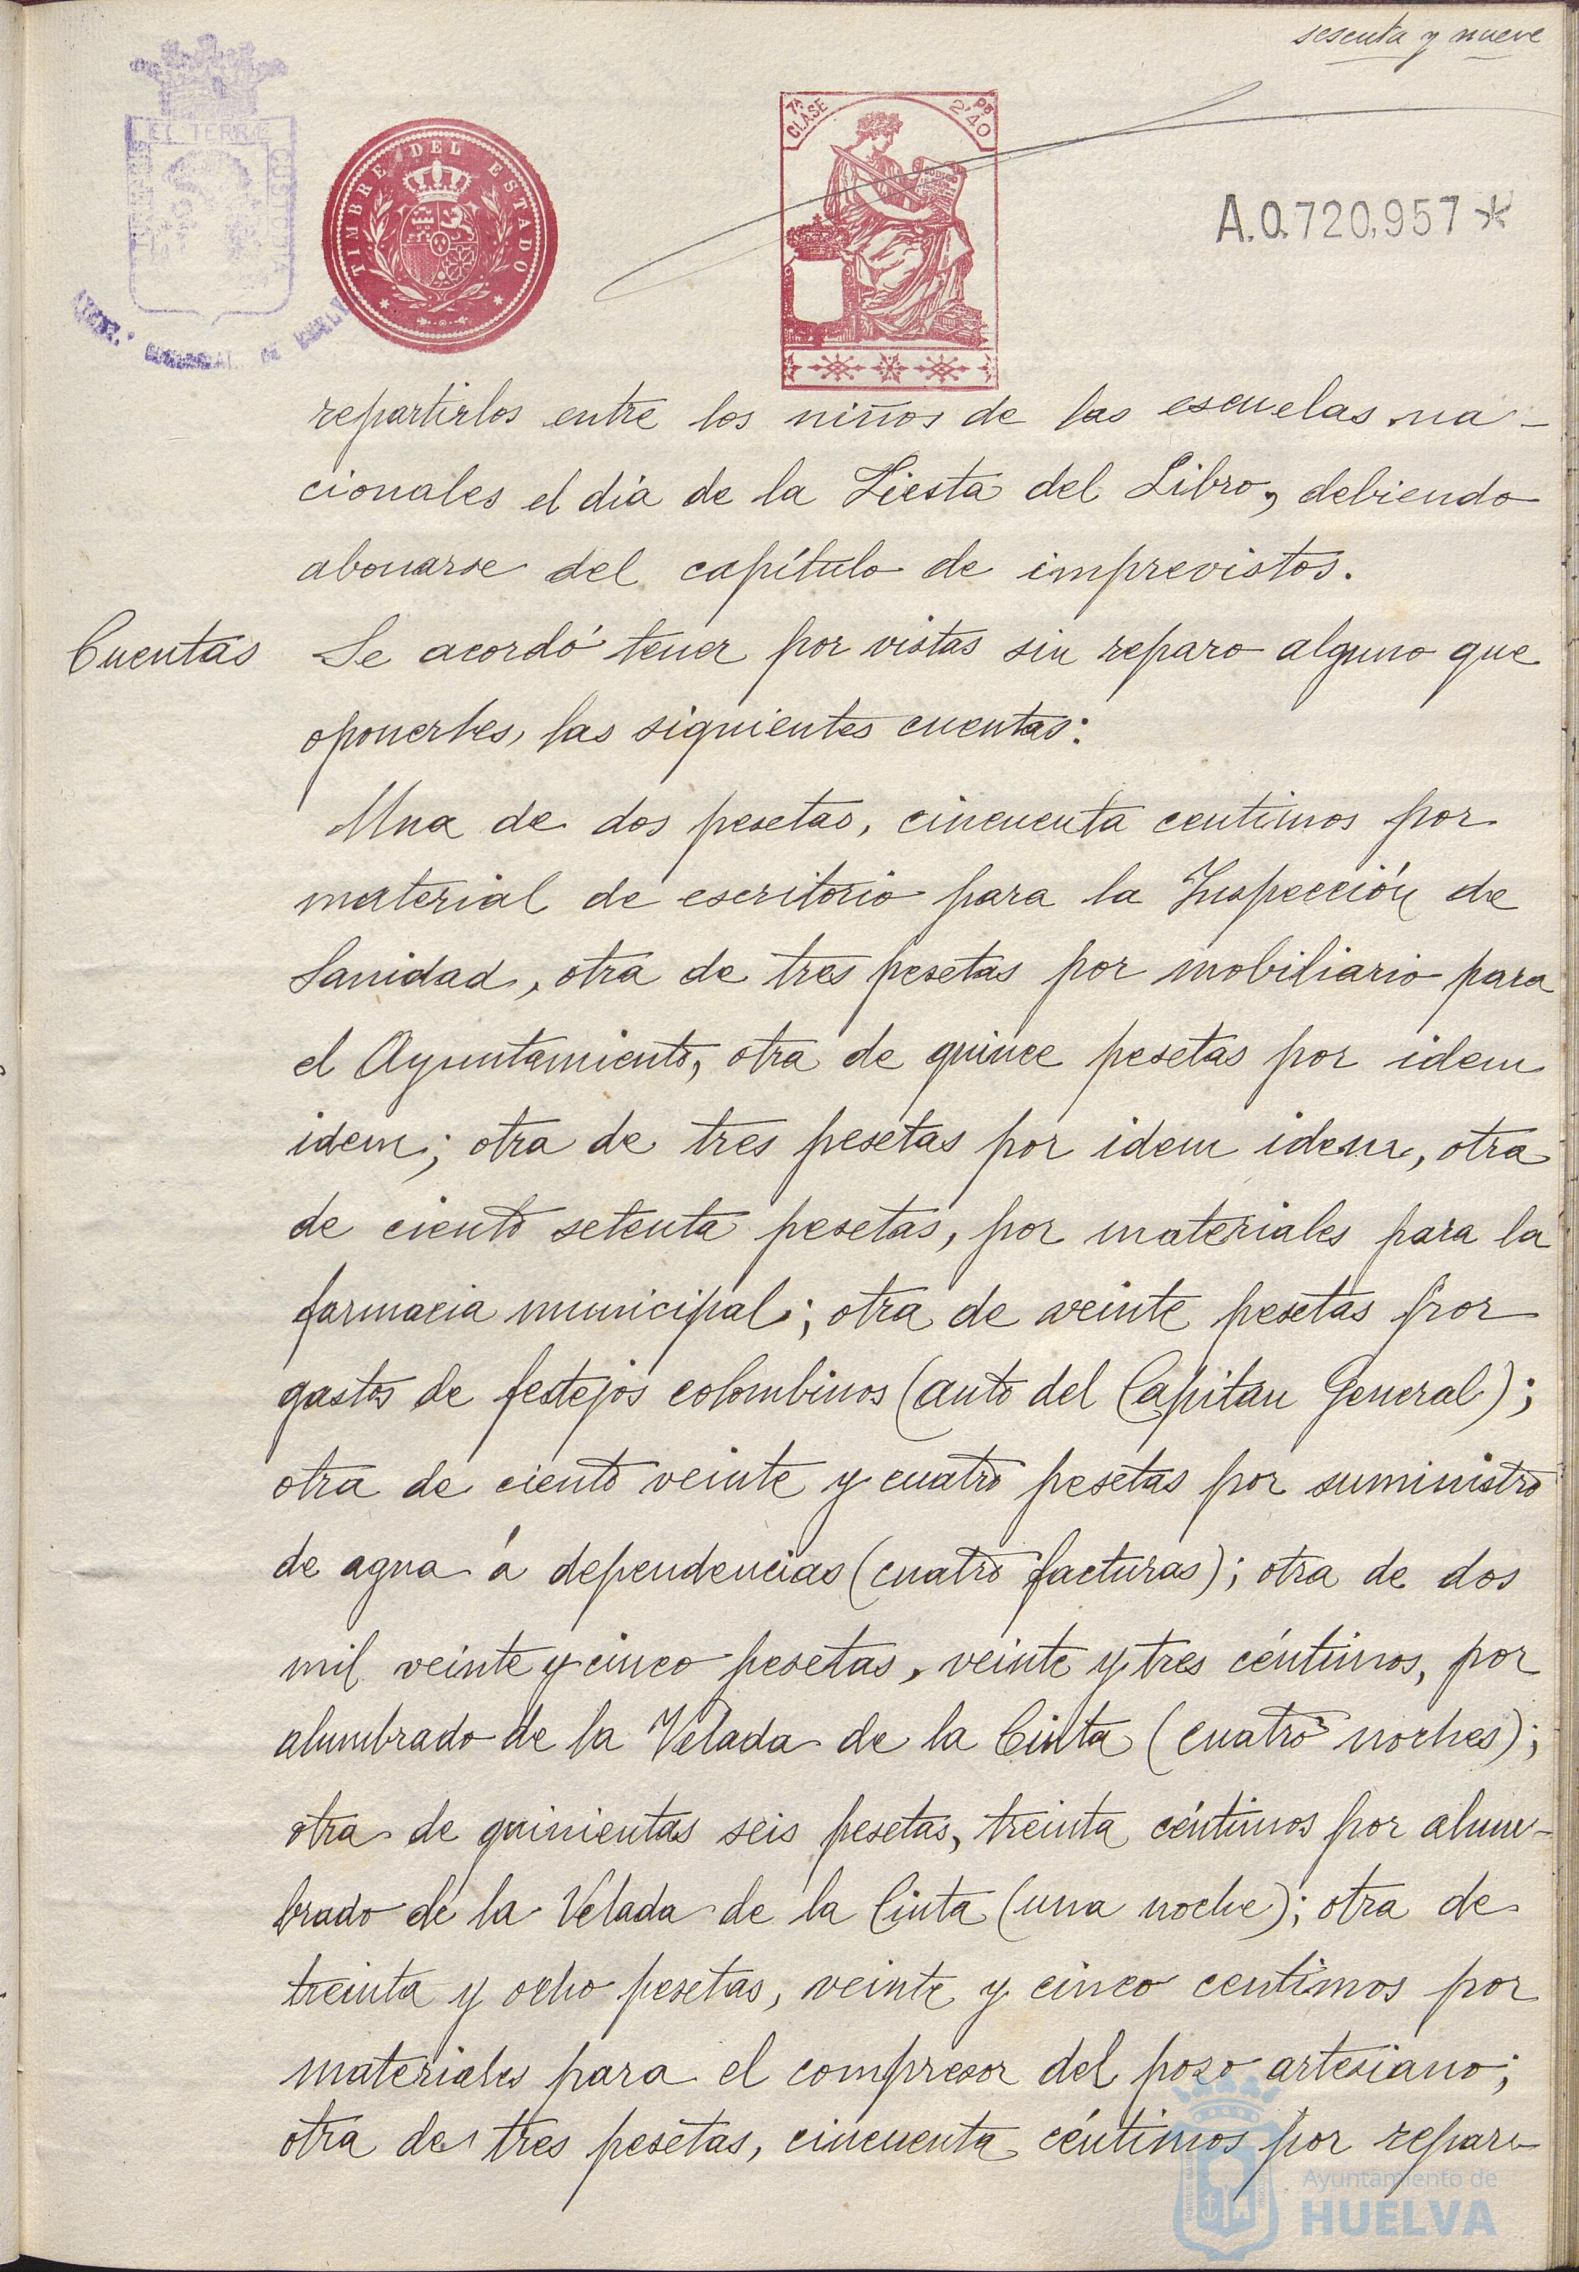 sesenta y nueve
TIMBRE DEL ESTADO
7ª CLASE
2'40
A.0.720,957*
repartirlos entre los niños de las escuelas na-
cionales el día de la Fiesta del Libro, debiendo
abonarse del capítulo de imprevistos.
Cuentas
Se acordó tener por vistas sin reparo alguno que
oponerles, las siguientes cuentas:
Una de dos pesetas, cincuenta centimos por
material de escritorio para la Inspección de
Sanidad, otra de tres pesetas por mobiliario para
el Ayuntamiento, otra de quince pesetas por idem
idem; otra de tres pesetas por idem idem, otra
de ciento setenta pesetas, por materiales para la
farmacia municipal; otra de veinte pesetas por
gastos de festejos colombinos (auto del Capitan General);
otra de ciento veinte y cuatro pesetas por suministro
de agua á dependencias (cuatro facturas); otra de dos
mil veinte y cinco pesetas, veinte y tres céntimos, por
alumbrado de la Velada de la Cinta (cuatro noches);
otra de quinientas seis pesetas, treinta céntimos por alum-
brado de la Velada de la Cinta (una noche); otra de
treinta y ocho pesetas, veinte y cinco centimos por
materiales para el compresor del pozo artesiano;
otra de tres pesetas, cincuenta céntimos por repara-
Ayuntamiento de
HUELVA